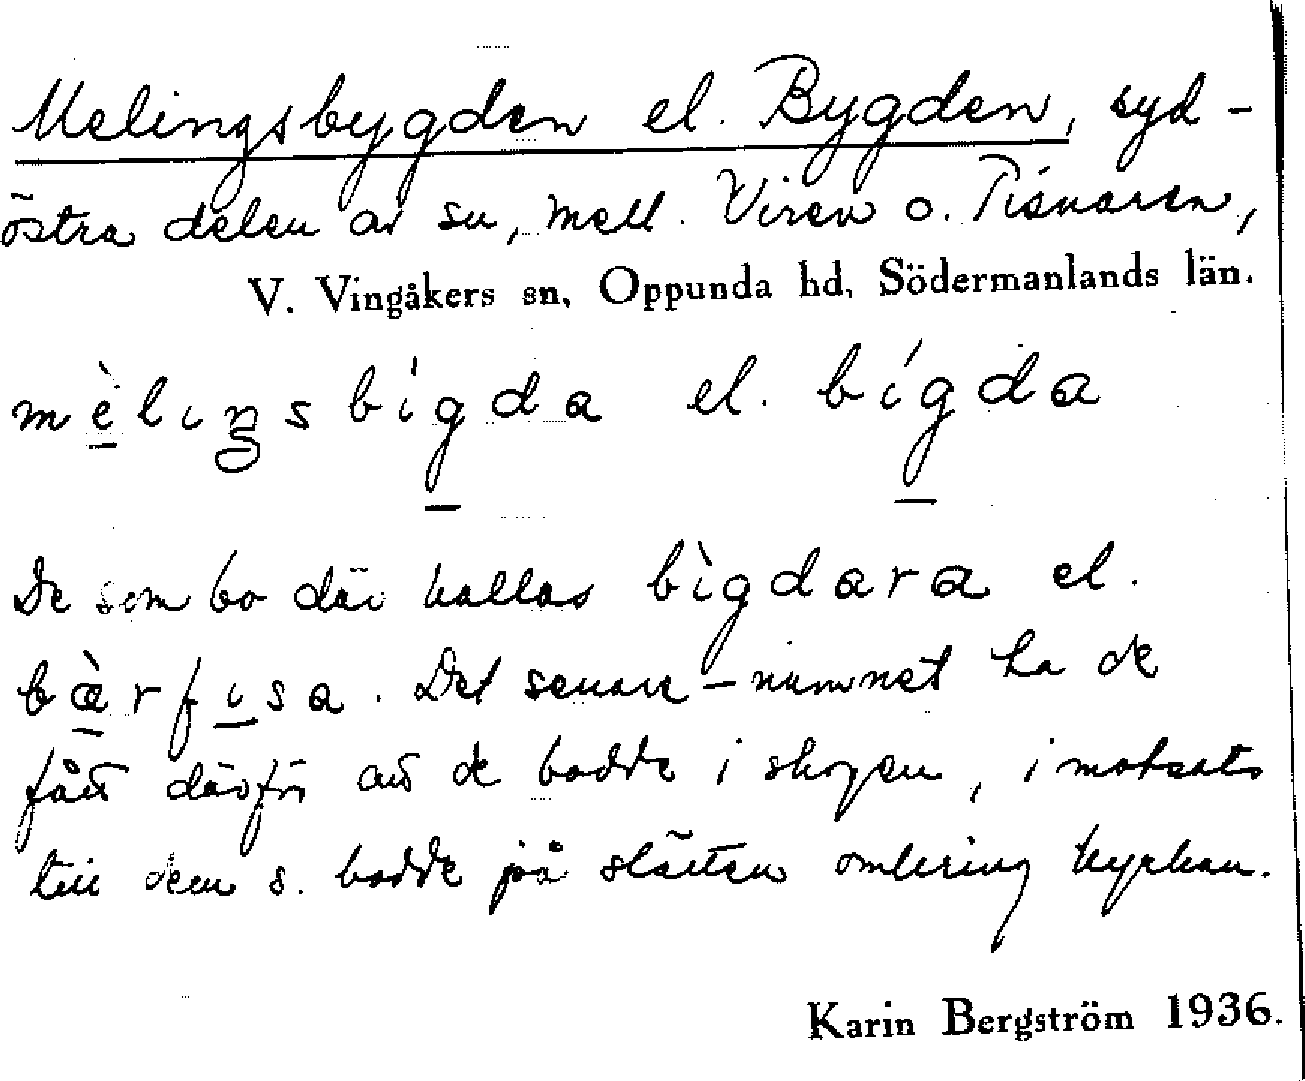 Melingsbygden el. Bygden, syd-
östra delen av sn, mell. Viren o. Tisnaren,
V. Vingåkers sn, Oppunda hd, Södermanlands län.
mèlıŋsbígda el. bígda
De som bo där kallas bìgdara el.
bæ̀rfɩsa. Det senare namnet ha de
fått därför att de bodde i skogen, i motsats
till dem s. bodde på slätten omkring kyrkan.
Karin Bergström 1936.